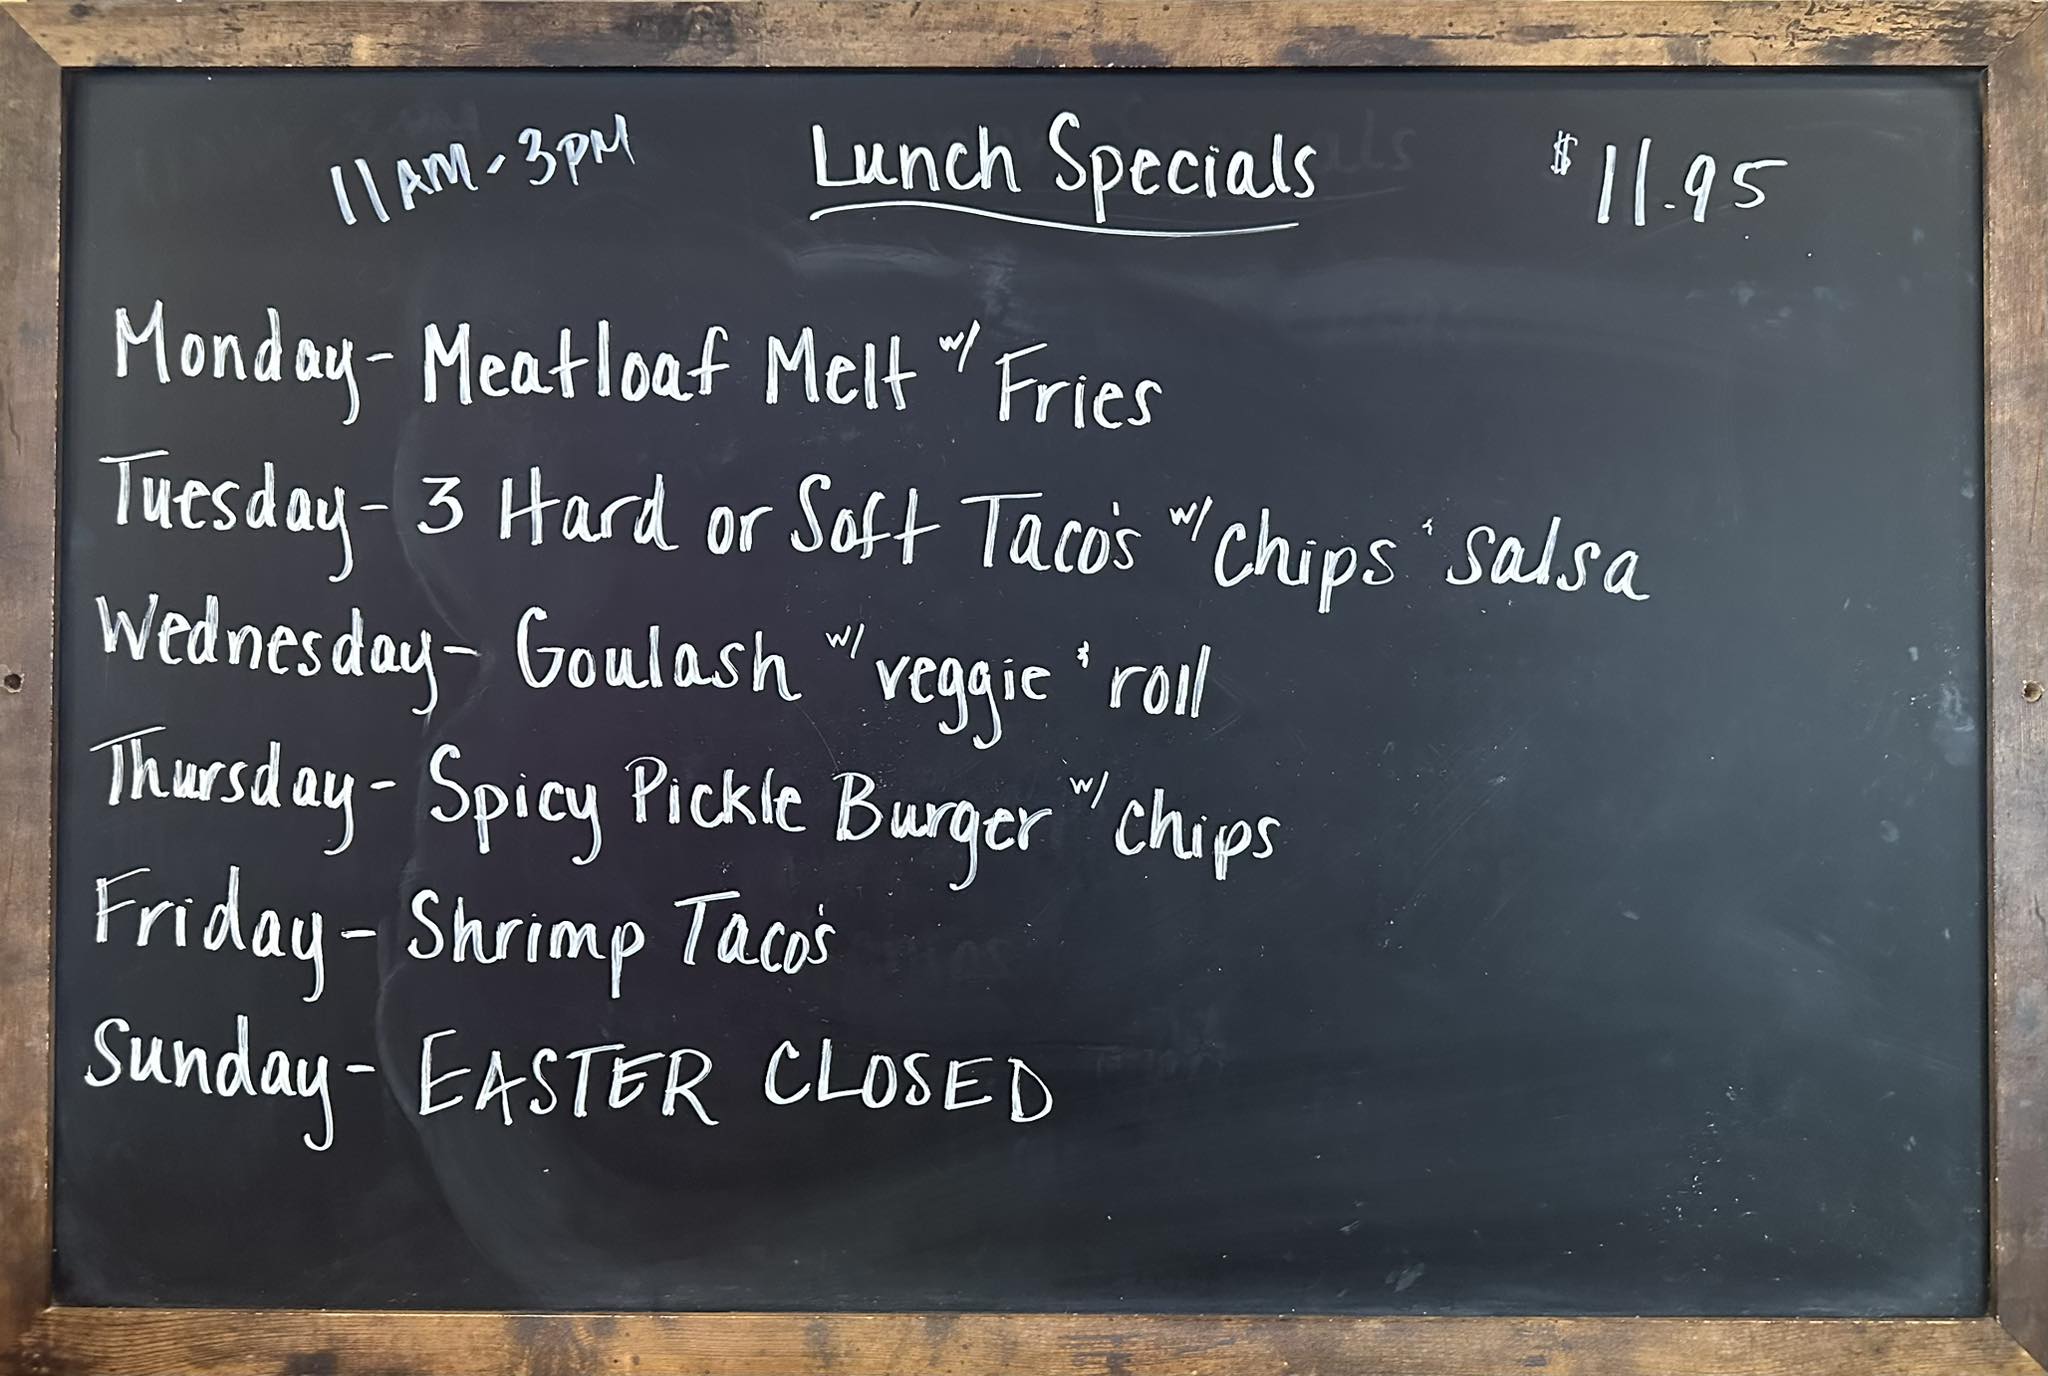 11AM-3PM Lunch Specials $11.95
Monday- Meatloaf Melt w/ Fries
Tuesday- 3 Hard or Soft Taco's w/ chips & salsa
Wednesday- Goulash w/ veggie & roll
Thursday- Spicy Pickle Burger w/ chips
Friday- Shrimp Taco's
Sunday- EASTER CLOSED